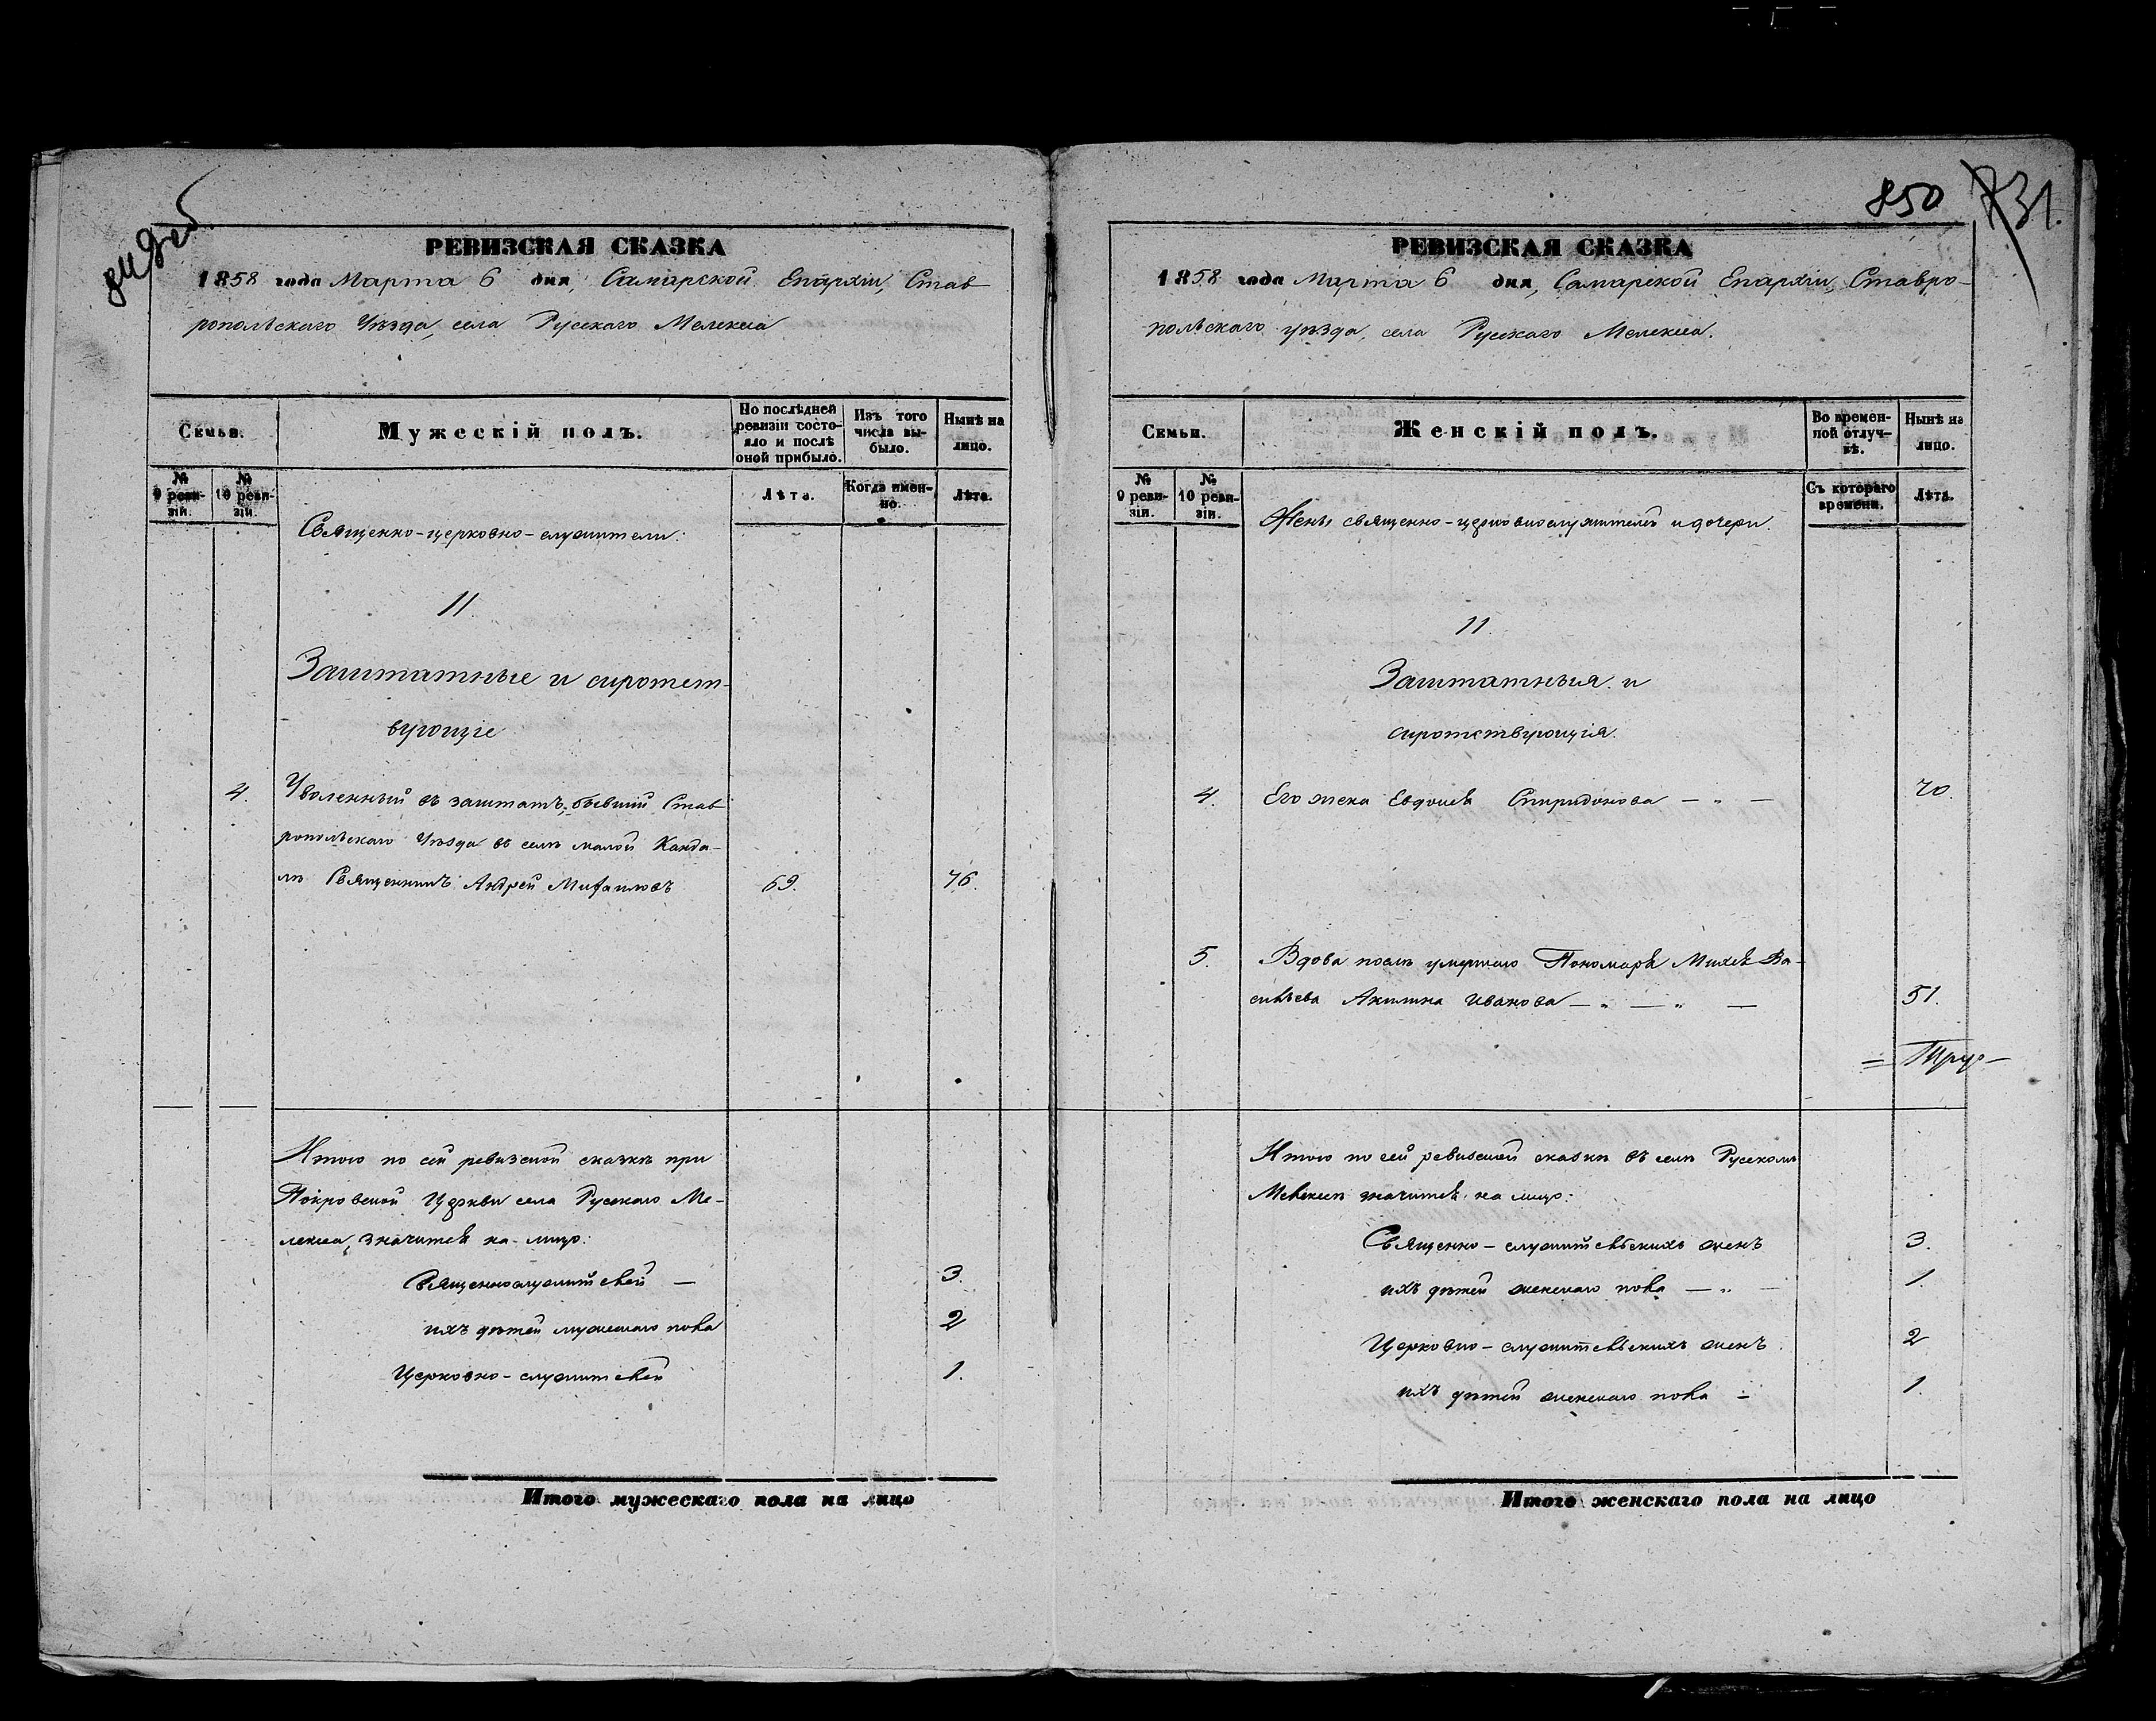 850 731.
РЕВИЗСКАЯ СКАЗКА
1858 года Марта 6 дня, Самарской Епархіи, Став
ропольскаго Уѣзда, села Русскаго Мелекеса
Семьи.
Мужескій полъ.
По послѣдней ревизіи состояло и послѣ оной прибыло.
Изъ того числа выбыло.
Нынѣ на лицо.
№ 9 ревизіи.
№ 10 ревизіи.
Лѣта.
Когда именно.
Лѣта.
Священно-церковно-служители:
11.
Заштатные и сиротст-
вующіе
4. Уволенный въ заштатъ, бывшій Став
ропольскаго Уѣзда въ селѣ малойКанда-
лѣ Священникъ Андрей Михайловъ 69. 76.
Итого по сей ревизской сказкѣ при
Покровской Церкви села Русскаго Ме-
лекеса, значится на-лицо:
Священнослужителей — 3.
ихъ дѣтей мужескаго пола 2
Церковно-служителей 1.
Итого мужескаго пола на лицо
РЕВИЗСКАЯ СКАЗКА
1858 года Марта 6 дня, Самарской Епархіи, Ставро-
польскаго уѣзда, села Русскаго Мелекеса.
Семьи.
Женскій полъ.
Во временной отлучкѣ.
Нынѣ на лицо.
№ 9 ревизіи.
№ 10 ревизіи.
Съ котораго времени.
Лѣта.
Жены священно-церковнослужителей и дочери.
11.
Заштатныя и
сиротствующія.
4. Его жена Евдокія Спиридонова — „ — 70.
5. Вдова послѣ умершаго Пономаря Михея Ва-
сильева Акилина Иванова — „ — „ — 51.
Итого по сей ревизской сказкѣ въ селѣ Русскомъ
Мелекесѣ значится на лицо:
Священно-служительскихъ женъ 3.
ихъ дѣтей женскаго пола — „ — 1.
Церковно-служительскихъ женъ 2
ихъ дѣтей женскаго пола — 1.
Итого женскаго пола на лицо